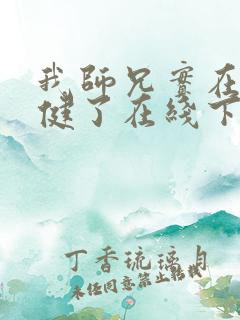 我师兄实在
健了在线下
丁香琉璃月
未经同意禁止转载